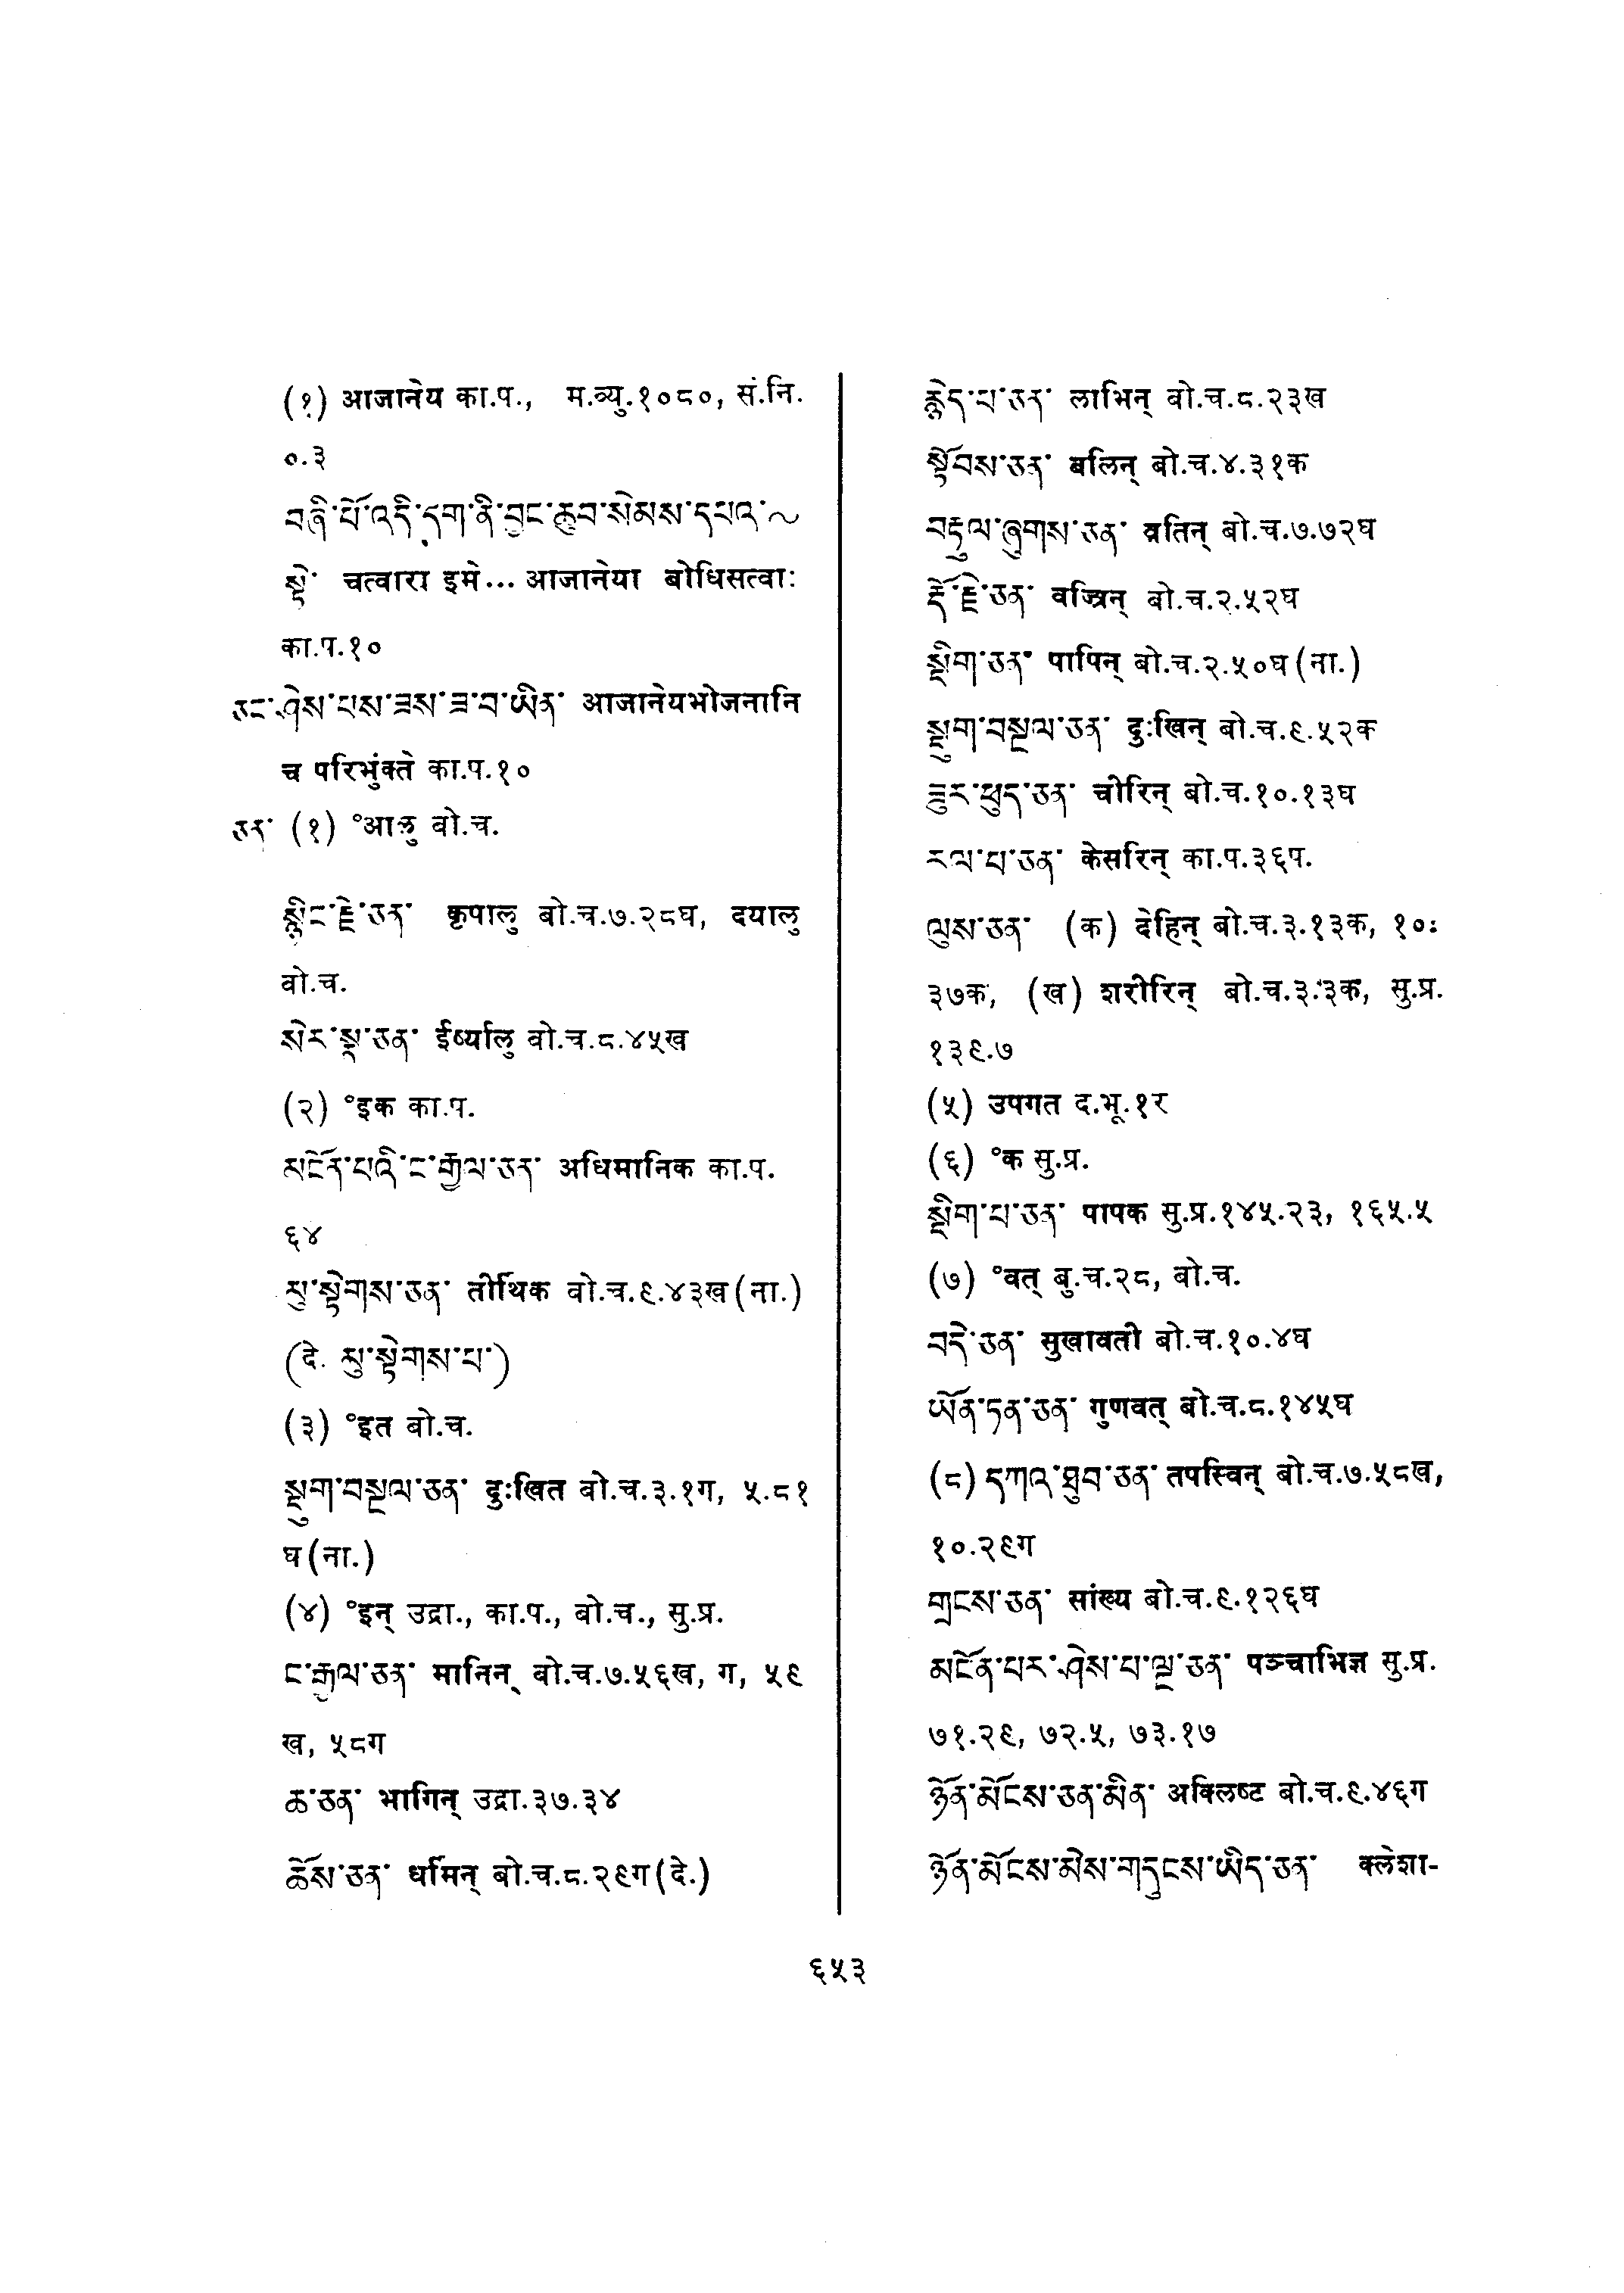 (१) आजानेय का.प., म.व्यु.१०८०, सं.नि.
०.३
བཞི་པོ་འདི་དག་ནི་བྱང་ཆུབ་སེམས་དཔའ་~
སྟེ་ चत्वारा इमे... आजानेया बोधिसत्वाः
का.प.१०
ཅང་ཤེས་པས་ཟས་ཟ་བ་ཡིན་ आजानेयभोजनानि
च परिभुंक्ते का.प.१०
ཅན་ (१) °आलु बो.च.
སྙིང་རྗེ་ཅན་ कृपालु बो.च.७.२८घ, दयालु
बो.च.
སེར་སྣ་ཅན་ ईर्ष्यालु बो.च.८.४५ख
(२) °इक का.प.
མངོན་པའི་ང་རྒྱལ་ཅན་ अधिमानिक का.प.
६४
མུ་སྟེགས་ཅན་ तीर्थिक बो.च.९.४३ख(ना.)
(दे. མུ་སྟེགས་པ་)
(३) °इत बो.च.
སྡུག་བསྔལ་ཅན་ दुःखित बो.च.३.१ग, ५.८१
घ(ना.)
(४) °इन् उद्रा., का.प., बो.च., सु.प्र.
ང་རྒྱལ་ཅན་ मानिन् बो.च.७.५६ख, ग, ५९
ख, ५८ग
ཆ་ཅན་ भागिन् उद्रा.३७.३४
ཆོས་ཅན་ धर्मिन् बो.च.८.२९ग(दे.)
རྙེད་པ་ཅན་ लाभिन् बो.च.८.२३ख
སྟོབས་ཅན་ बलिन् बो.च.४.३१क
བརྟུལ་ཞུགས་ཅན་ व्रतिन् बो.च.७.७२घ
རྡོ་རྗེ་ཅན་ वज्रिन् बो.च.२.५२घ
སྡིག་ཅན་ पापिन् बो.च.२.५०घ(ना.)
སྡུག་བསྔལ་ཅན་ दुःखिन् बो.च.९.५२क
ཟུར་ཕུད་ཅན་ चीरिन् बो.च.१०.१३घ
རལ་པ་ཅན་ केसरिन् का.प.३६प.
ལུས་ཅན་ (क) देहिन् बो.च.३.१३क, १०ः
३७क, (ख) शरीरिन् बो.च.३.३क, सु.प्र.
१३९.७
(५) उपगत द.भू.१र
(६) °क सु.प्र.
སྡིག་པ་ཅན་ पापक सु.प्र.१४५.२३, १६५.५
(७) °वत् बु.च.२८, बो.च.
བདེ་ཅན་ सुखावती बो.च.१०.४घ
ཡོན་ཏན་ཅན་ गुणवत् बो.च.८.१४५घ
(८) དཀའ་ཐུབ་ཅན་ तपस्विन् बो.च.७.५८ख,
१०.२९ग
གྲངས་ཅན་ सांख्य बो.च.९.१२६घ
མངོན་པར་ཤེས་པ་ལྔ་ཅན་ पञ्चाभिज्ञ सु.प्र.
७१.२९, ७२.५, ७३.१७
ཉོན་མོངས་ཅན་མིན་ अक्लिष्ट बो.च.९.४६ग
ཉོན་མོངས་མེས་གདུངས་ཡིད་ཅན་ क्लेशा-
६५३